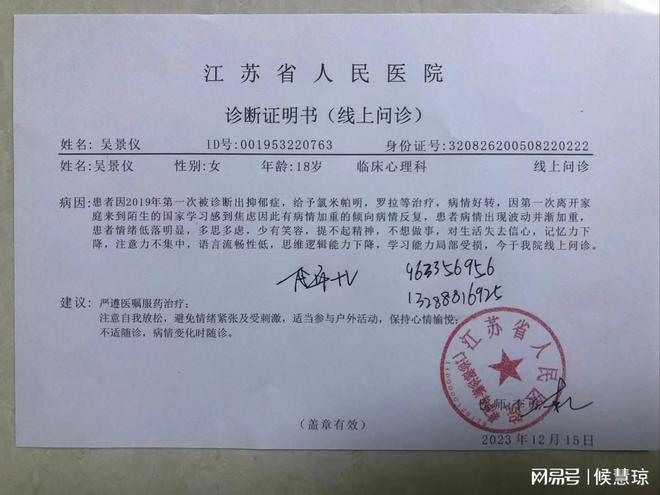 江苏省人民医院
诊断证明书（线上问诊）
姓名: 吴景仪 ID号:001953220763 身份证号:320826200508220222
姓名:吴景仪 性别:女 年龄:18岁 临床心理科 线上问诊
病因:患者因2019年第一次被诊断出抑郁症，给予氯米帕明，罗拉等治疗，病情好转，因第一次离开家
庭来到陌生的国家学习感到焦虑因此有病情加重的倾向病情反复，患者病情出现波动并渐加重，
患者情绪低落明显，多思多虑，少有笑容，提不起精神，不想做事，对生活失去信心，记忆力下
降，注意力不集中，语言流畅性低，思维逻辑能力下降，学习能力局部受损，今于我院线上问诊。
463356956
13288816925
建议: 严遵医嘱服药治疗;
注意自我放松，避免情绪紧张及受刺激，适当参与户外活动，保持心情愉悦;
不适随诊，病情变化时随诊。
江苏省人民医院
医师:李
（盖章有效）
2023年12月15日
网易号 | 候慧琼